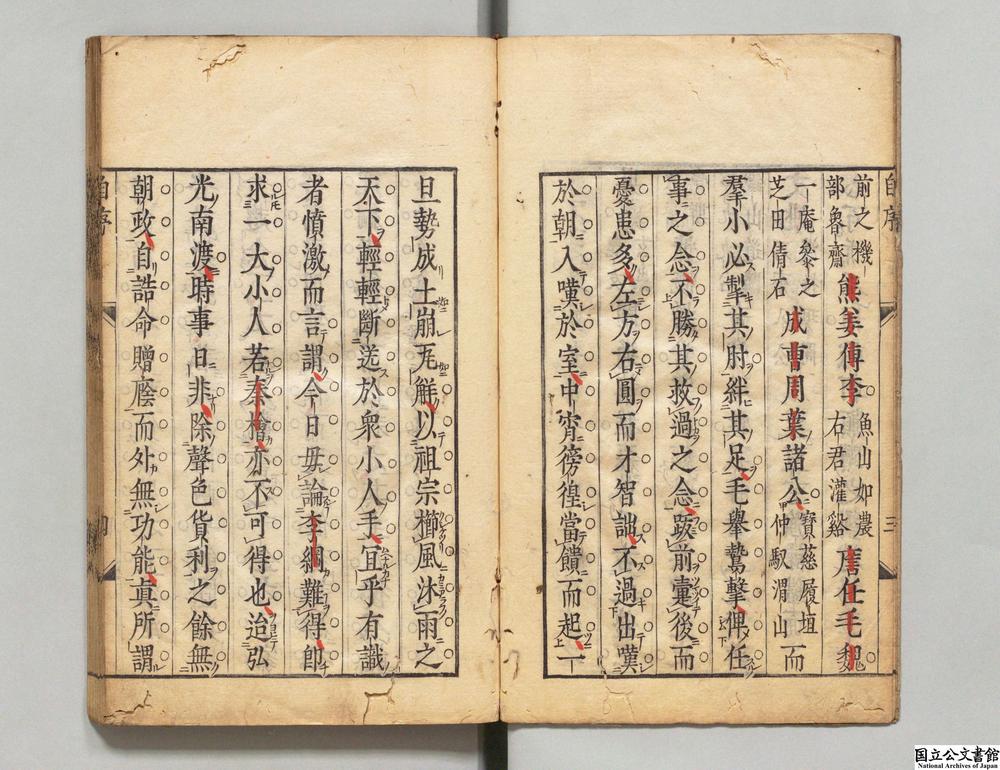 自序 三
前之機
部魯齋
熊姜傅李
魚山如農
右君灌谿
任毛魏
一庵粲之
芝田倩石
成曹周葉諸公
寶慈履垣
仲馭渭山
而
羣小必掣其肘絆其足毛舉鷙擊俾任
事之念不勝其救過之念跋前疐後而
憂患多左方右圓而才智詘不過出嘆
於朝入嘆於室中宵徬徨當饋而起一
旦勢成土崩瓦解以祖宗櫛風沐雨之
天下輕輕斷送於衆小人手宜乎有識
者憤激而言謂今日毋論李綱難得即
求一大小人若秦檜亦不可得也迨弘
光南渡時事日非除聲色貨利之餘無
朝政自誥命贈廕而外無功能真所謂
自序 四
国立公文書館
National Archives of Japan